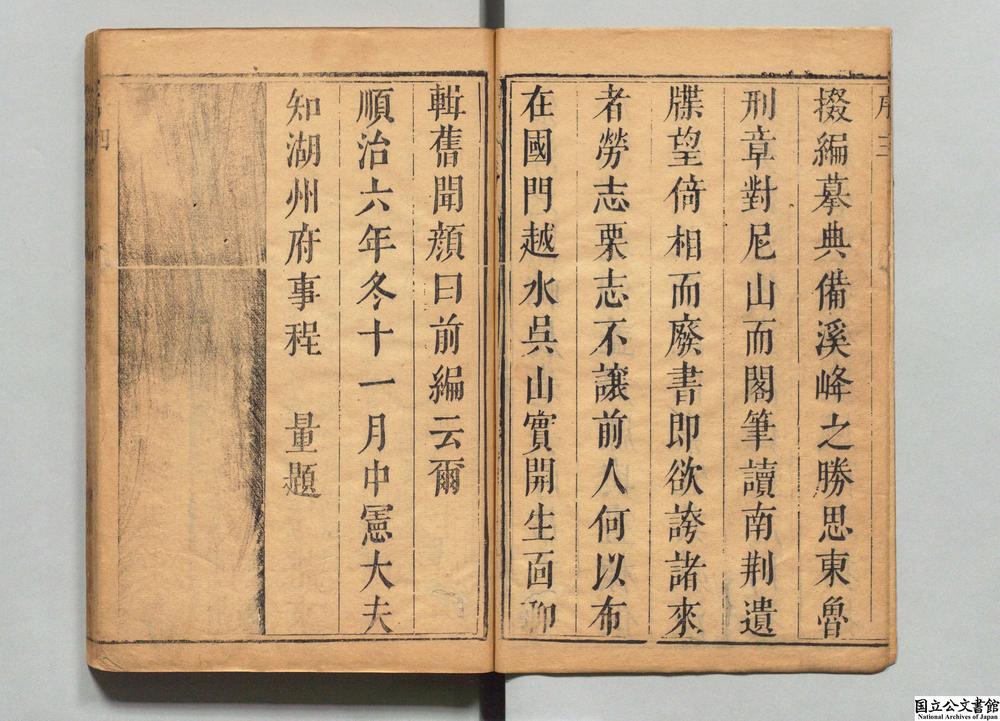 掇編摹典備溪峰之勝思東魯
刑章對尼山而閣筆讀南荆遺
牒望倚相而廢書即欲誇諸來
者勞志栗志不讓前人何以布
在國門越水吳山實開生面聊
輯舊聞顔曰前編云爾
順治六年冬十一月中憲大夫
知湖州府事程　量題
国立公文書館
National Archives of Japan